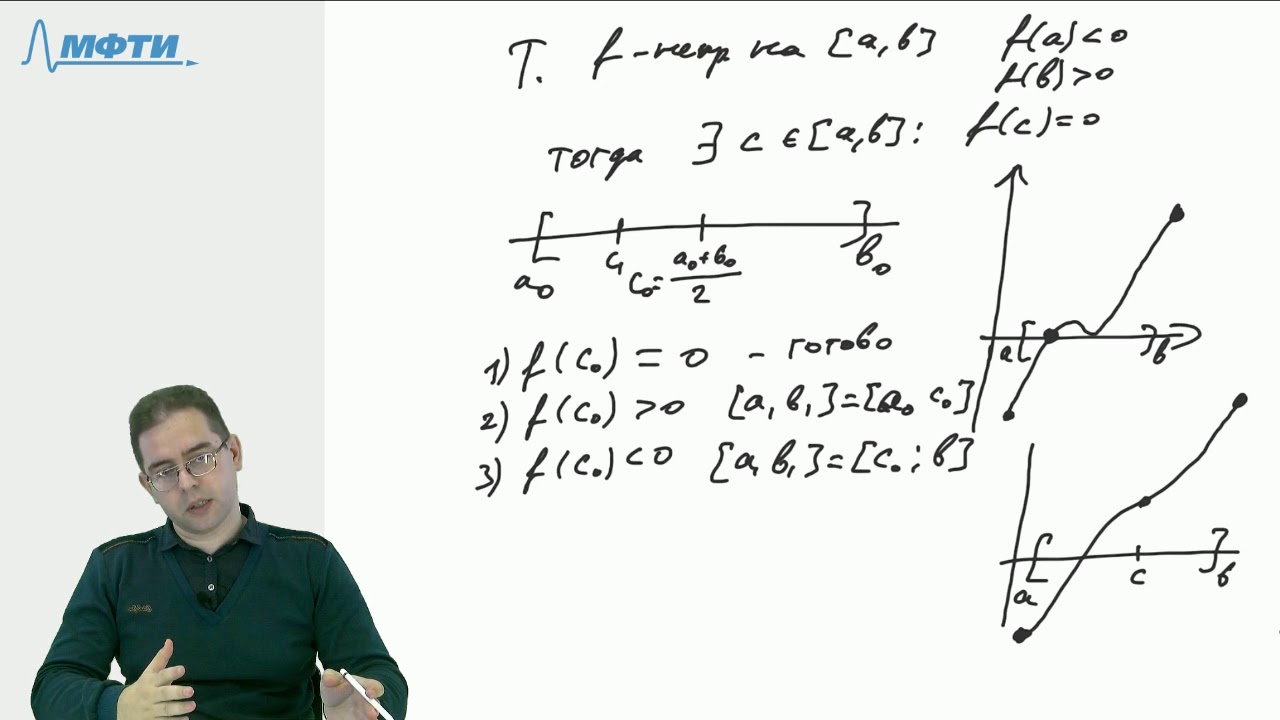 МФТИ
Т. f - непр на [a, b] f(a) < 0
f(b) > 0
тогда ∃ c ∈ [a, b] : f(c) = 0
a₀ c₁ c₀ = (a₀ + b₀)/2 b₀
1) f(c₀) = 0 - готово
2) f(c₀) > 0 [a, b₁] = [a₀ c₀]
3) f(c₀) < 0 [a₁ b₁] = [c₀ ; b]
a b
a c b